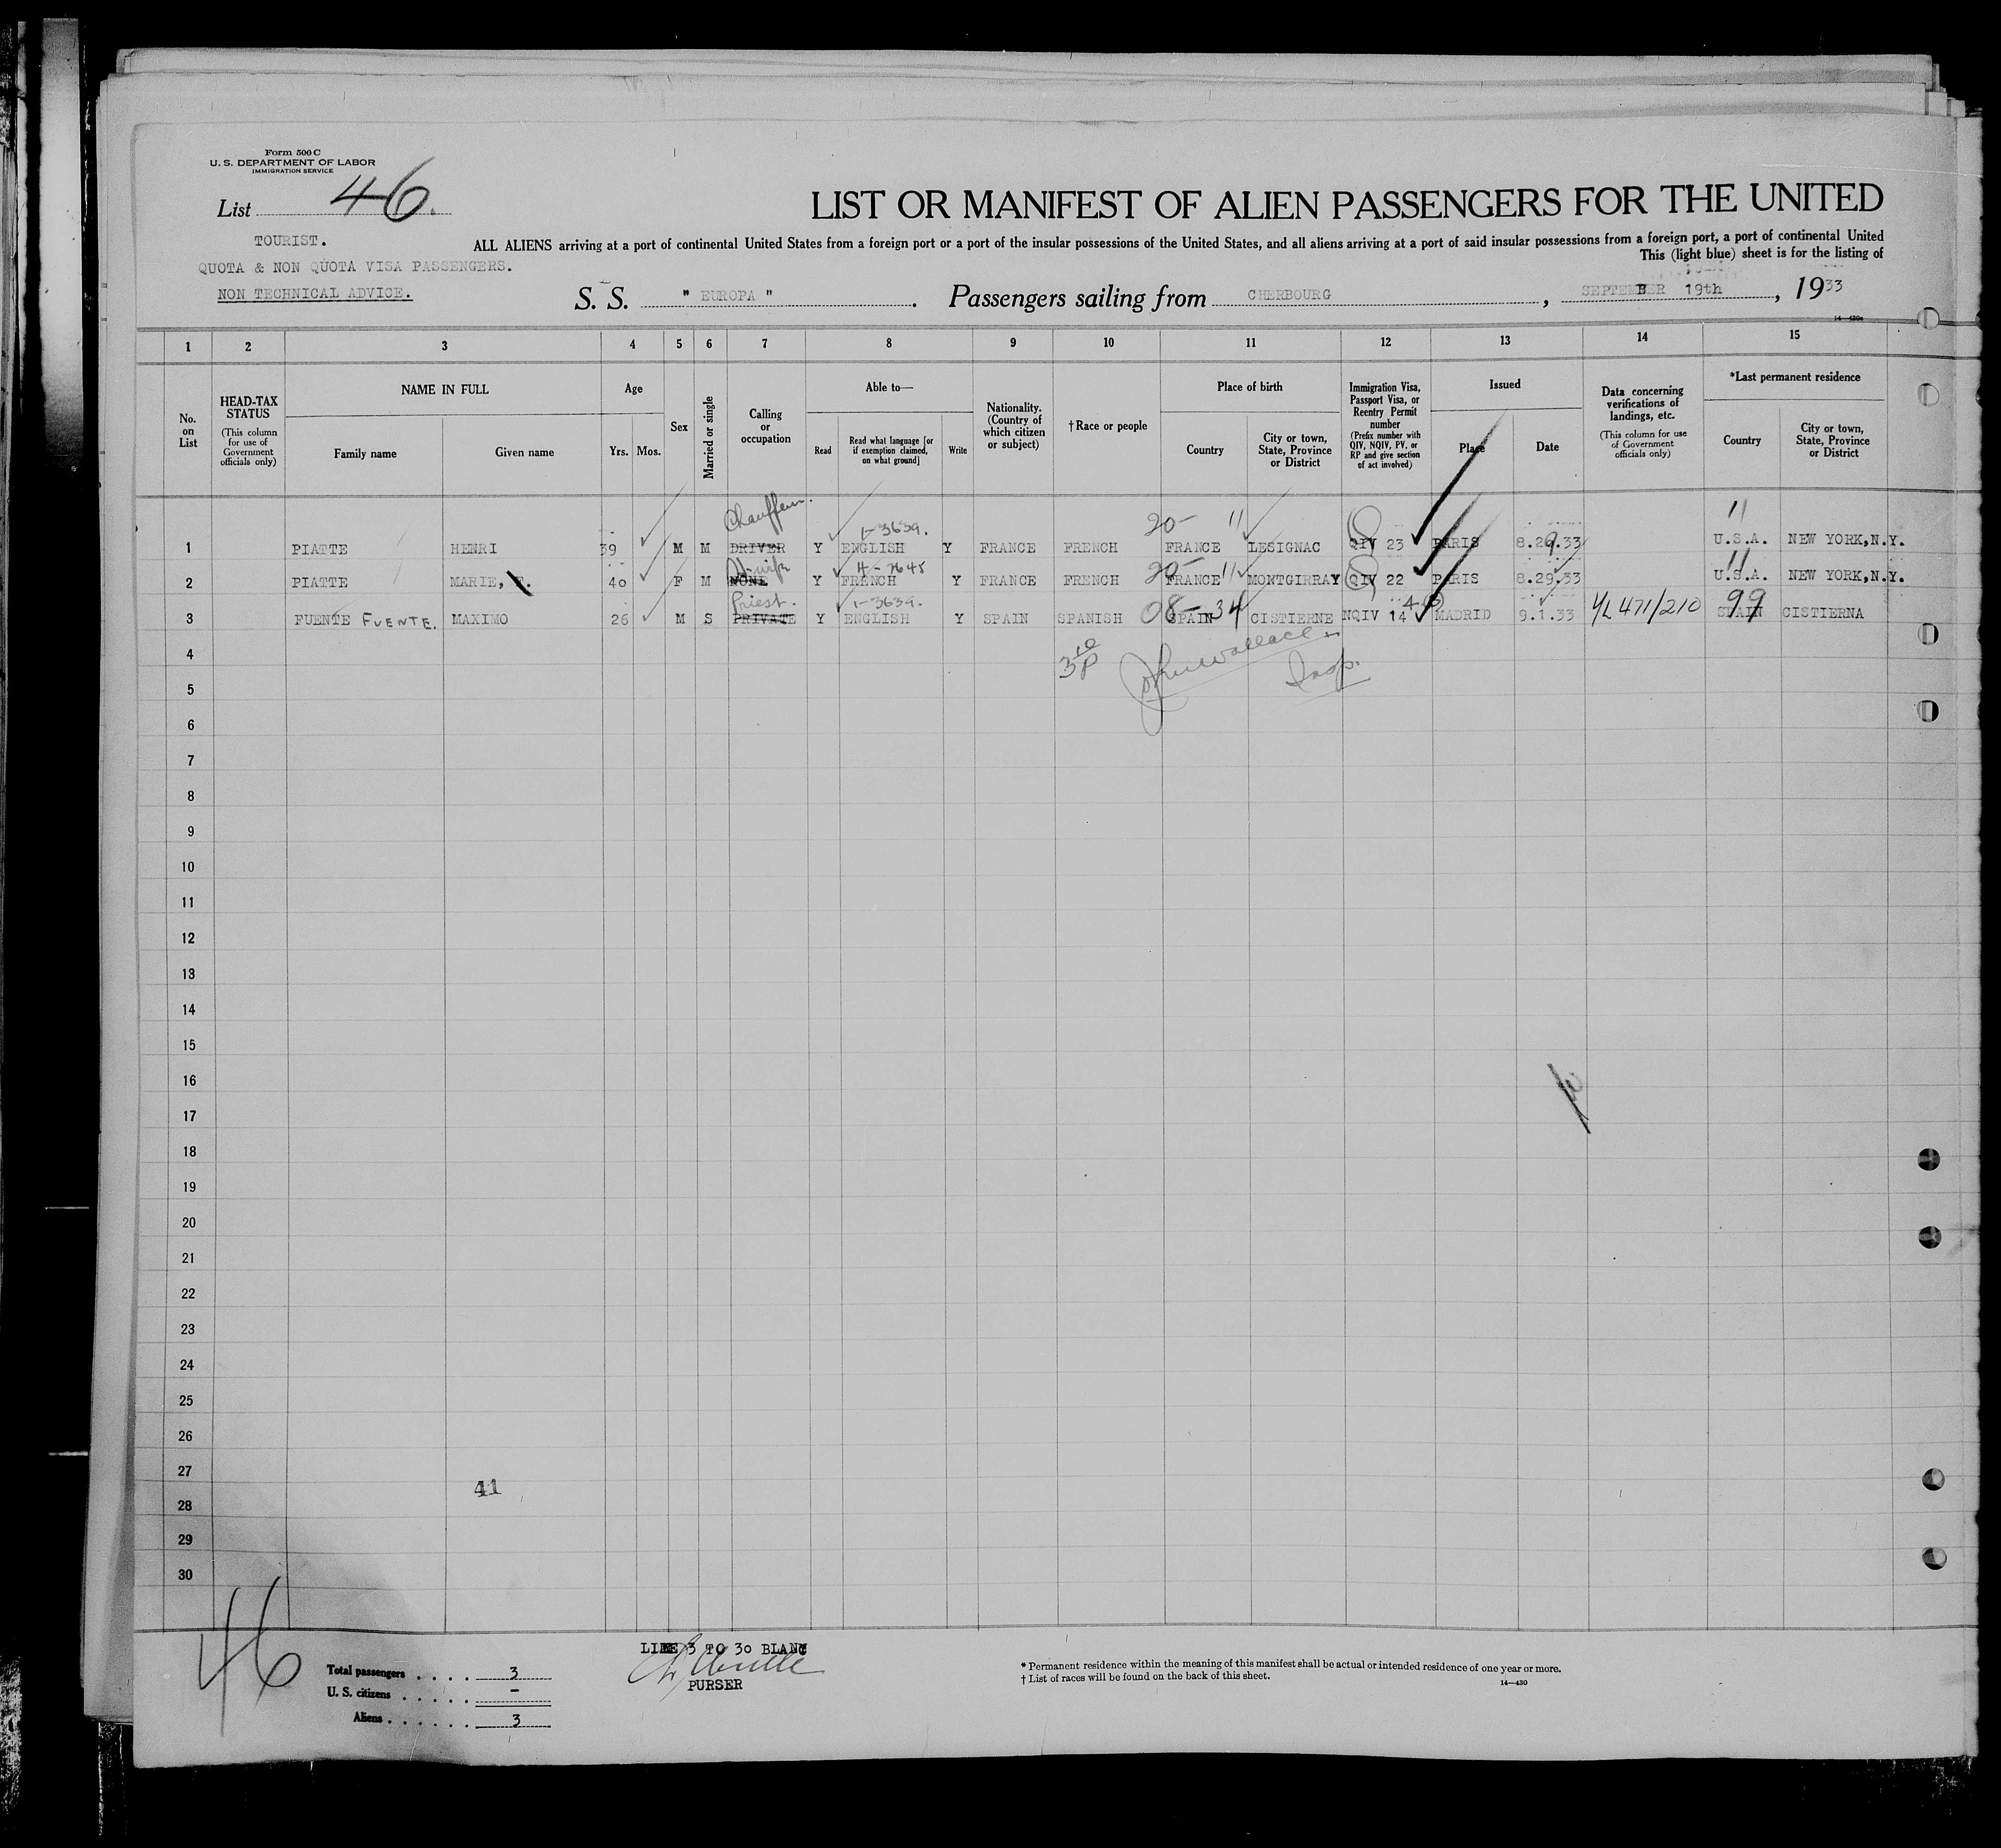 Form 500 C
U. S. DEPARTMENT OF LABOR
IMMIGRATION SERVICE
List 46.
LIST OR MANIFEST OF ALIEN PASSENGERS FOR THE UNITED
TOURIST.
QUOTA & NON QUOTA VISA PASSENGERS.
NON TECHNICAL ADVICE.
ALL ALIENS arriving at a port of continental United States from a foreign port or a port of the insular possessions of the United States, and all aliens arriving at a port of said insular possessions from a foreign port, a port of continental United
This (light blue) sheet is for the listing of
S. S. " EUROPA " . Passengers sailing from CHERBOURG , SEPTEMBER 19th , 1933
14—430c
1 2 3 4 5 6 7 8 9 10 11 12 13 14 15
No. on List
HEAD-TAX STATUS (This column for use of Government officials only)
NAME IN FULL
Family name Given name
Age
Yrs. Mos.
Sex
Married or single
Calling or occupation
Able to—
Read
Read what language [or if exemption claimed, on what ground]
Write
Nationality. (Country of which citizen or subject)
†Race or people
Place of birth
Country
City or town, State, Province or District
Immigration Visa, Passport Visa, or Reentry Permit number (Prefix number with QIV, NQIV, PV, or RP and give section of act involved)
Issued
Place Date
Data concerning verifications of landings, etc. (This column for use of Government officials only)
*Last permanent residence
Country
City or town, State, Province or District
Chauffeur. 1-3639. 20- 11 11
1 PIATTE HENRI 39 M M DRIVER Y ENGLISH Y FRANCE FRENCH FRANCE LESIGNAC QIV 23 PARIS 8.29.33 U.S.A. NEW YORK,N.Y.
H-wife 4-7645 20- 11 11
2 PIATTE MARIE, 40 F M NONE Y FRENCH Y FRANCE FRENCH FRANCE MONTGIRRAY QIV 22 PARIS 8.29.33 U.S.A. NEW YORK,N.Y.
Priest. 1-3639. 08-34 99
3 FUENTE FUENTE. MAXIMO 26 M S PRIVATE Y ENGLISH Y SPAIN SPANISH SPAIN CISTIERNE NQIV 14 MADRID 9.1.33 V/L 471/210 SPAIN CISTIERNA
4
John Wallace
5 Insp.
6
7
8
9
10
11
12
13
14
15
16
17
18
19
20
21
22
23
24
25
26
27
41
28
29
30
46
LINE 3 TO 30 BLANC
PURSER
Total passengers . . . . 3
U. S. citizens . . . . . –
Aliens . . . . . . 3
* Permanent residence within the meaning of this manifest shall be actual or intended residence of one year or more.
† List of races will be found on the back of this sheet.
14—430